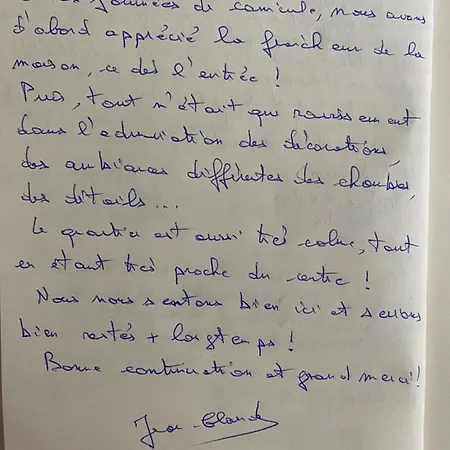 journées de canicule, nous avons
d'abord apprécié la fraîcheur de la
maison, ce dès l'entrée !
Puis, tout n'était que ravissement
dans l'admiration des décorations,
des ambiances différentes des chambres,
des détails...
Le quartier est aussi très calme, tout
en étant très proche du centre !
Nous nous sentons bien ici et serions
bien restés + longtemps !
Bonne continuation et grand merci !
Jean-Claude